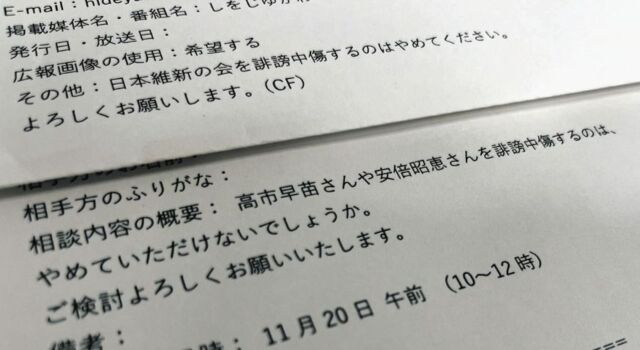 E-mail：hideya
掲載媒体名・番組名：しをじゆか
発行日・放送日：
広報画像の使用：希望する
その他：日本維新の会を誹謗中傷するのはやめてください。
よろしくお願いします。(CF)
相手方のふりがな：
相談内容の概要： 高市早苗さんや安倍昭恵さんを誹謗中傷するのは、
やめていただけないでしょうか。
ご検討よろしくお願いいたします。
備考：
時： 11月20日 午前 （10～12時）
===